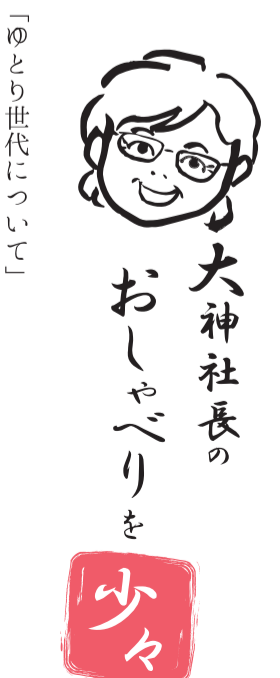 大神社長の
おしゃべりを
少々
「ゆとり世代について」